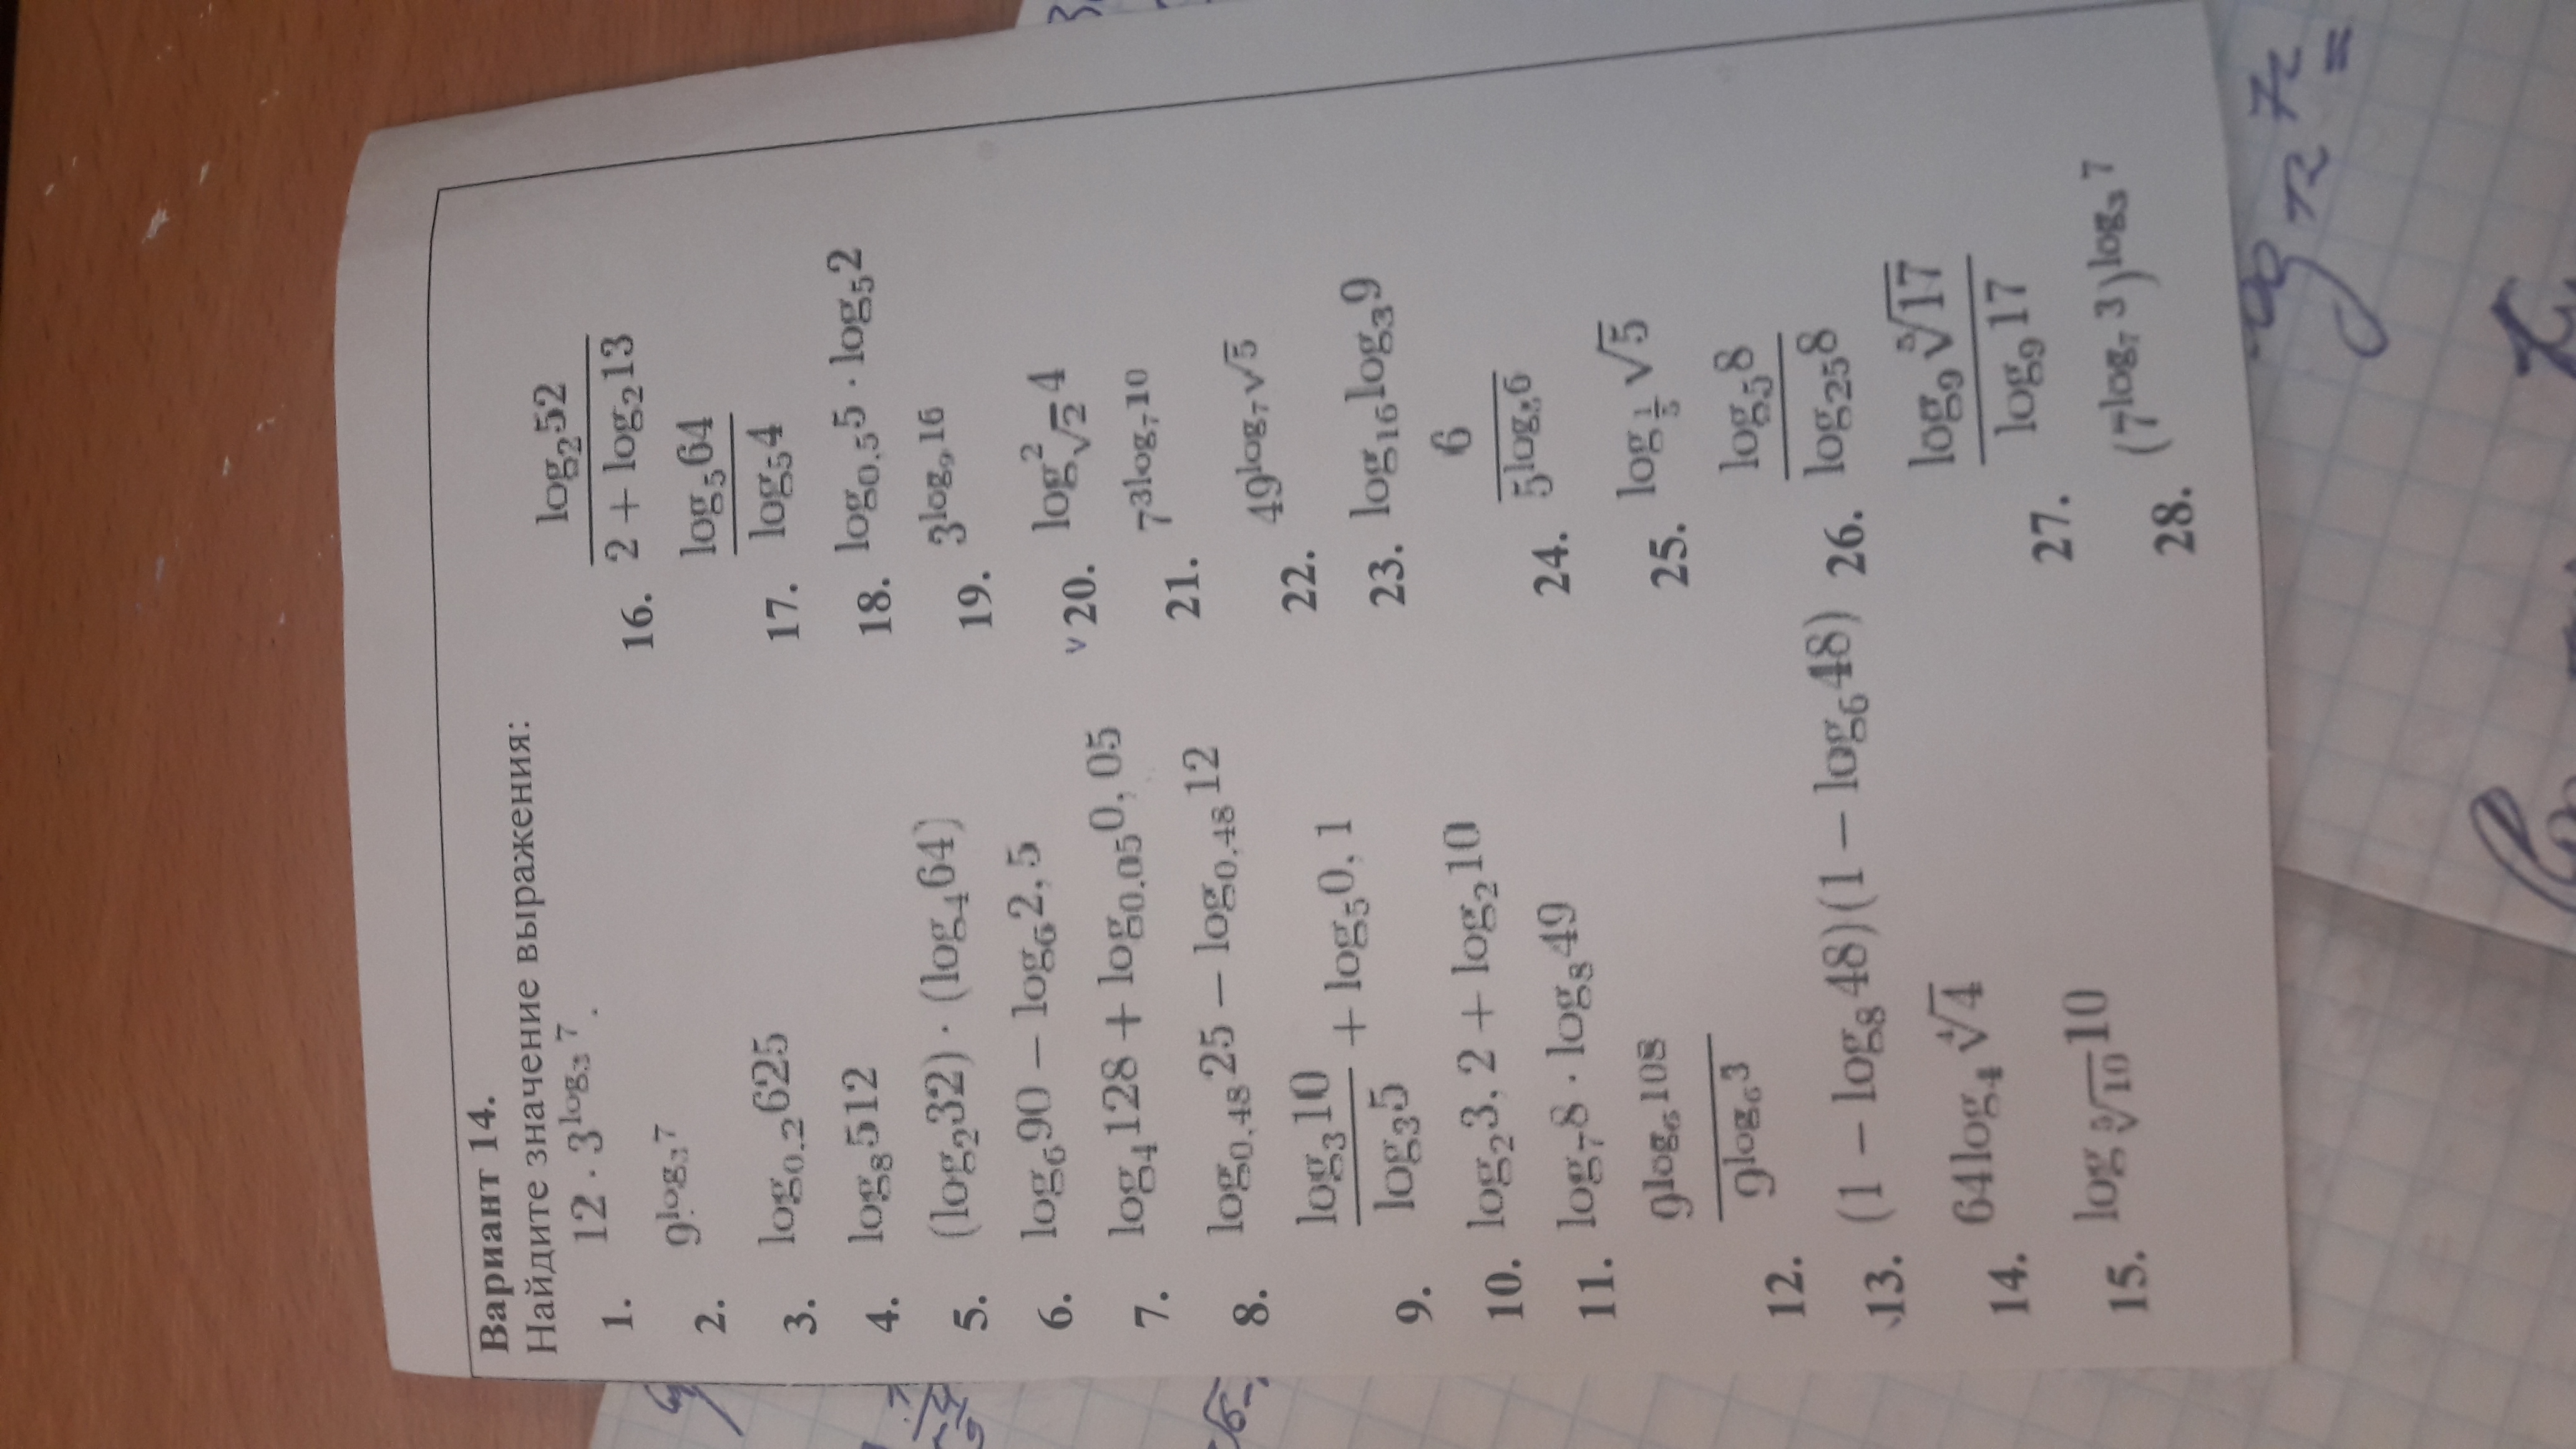 Вариант 14.
Найдите значение выражения:
1. 12 · 3^{log_3 7}.
2. 9^{log_3 7}
3. log_{0,2} 625
4. log_8 512
5. (log_2 32) · (log_4 64)
6. log_6 90 − log_6 2,5
7. log_4 128 + log_{0,05} 0,05
8. log_{0,48} 25 − log_{0,48} 12
9. \frac{log_3 10}{log_3 5} + log_5 0,1
10. log_2 3,2 + log_2 10
11. log_7 8 · log_8 49
12. \frac{9^{log_6 108}}{9^{log_6 3}}
13. (1 − log_8 48)(1 − log_6 48)
14. 64log_4 \sqrt[4]{4}
15. log_{\sqrt[9]{10}} 10
16. \frac{log_2 52}{2 + log_2 13}
17. \frac{log_5 64}{log_5 4}
18. log_{0,5} 5 · log_5 2
19. 3^{log_9 16}
v 20. log^2_{\sqrt{2}} 4
21. 7^{3log_7 10}
22. 49^{log_7 \sqrt{5}}
23. log_{16} log_3 9
24. \frac{6}{5^{log_5 6}}
25. log_{\frac{1}{5}} \sqrt{5}
26. \frac{log_5 8}{log_{25} 8}
27. \frac{log_9 \sqrt[5]{17}}{log_9 17}
28. (7^{log_7 3})^{log_3 7}